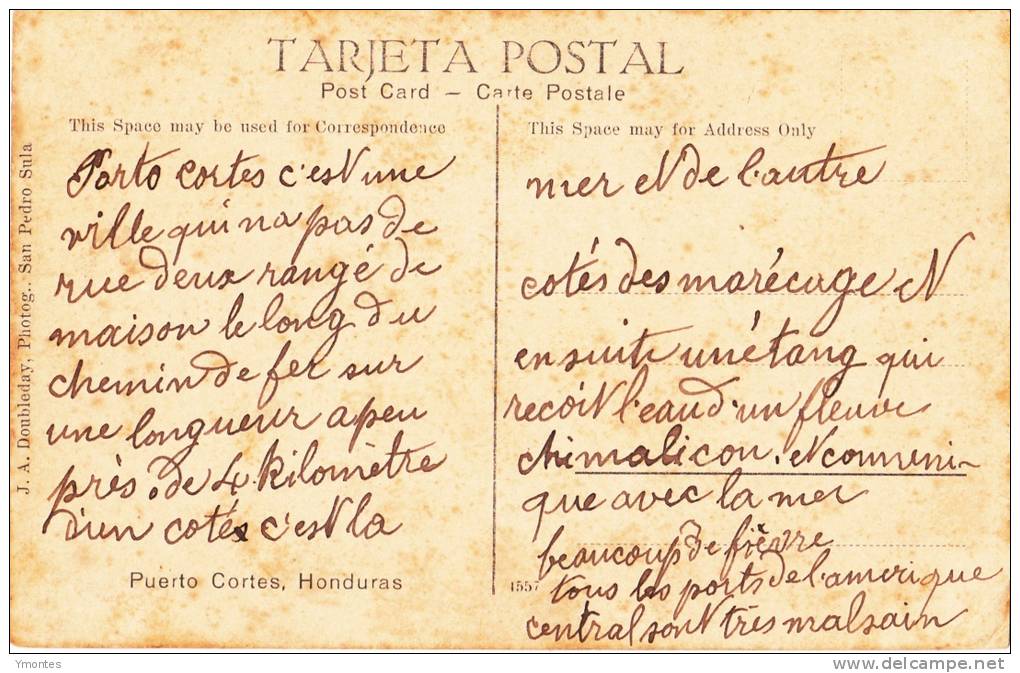 TARJETA POSTAL
Post Card – Carte Postale
This Space may be used for Correspondence
This Space may for Address Only
J. A. Doubleday, Photog.. San Pedro Sula
Porto cortes c'est une
ville qui na pas de
rue deux rangé de
maison le long du
chemin de fer sur
une longueur a peu
près de 4 kilomètre
d'un cotés c'est la
mer et de l'autre
cotés des marécage et
en suite un étang qui
recoit l'eau d'un fleuve
chimalicon. et conmeni-
que avec la mer
beaucoup de fièvre
tous les ports de l'amerique
central sont très malsain
Puerto Cortes, Honduras
1557
Ymontes
delcampe.net